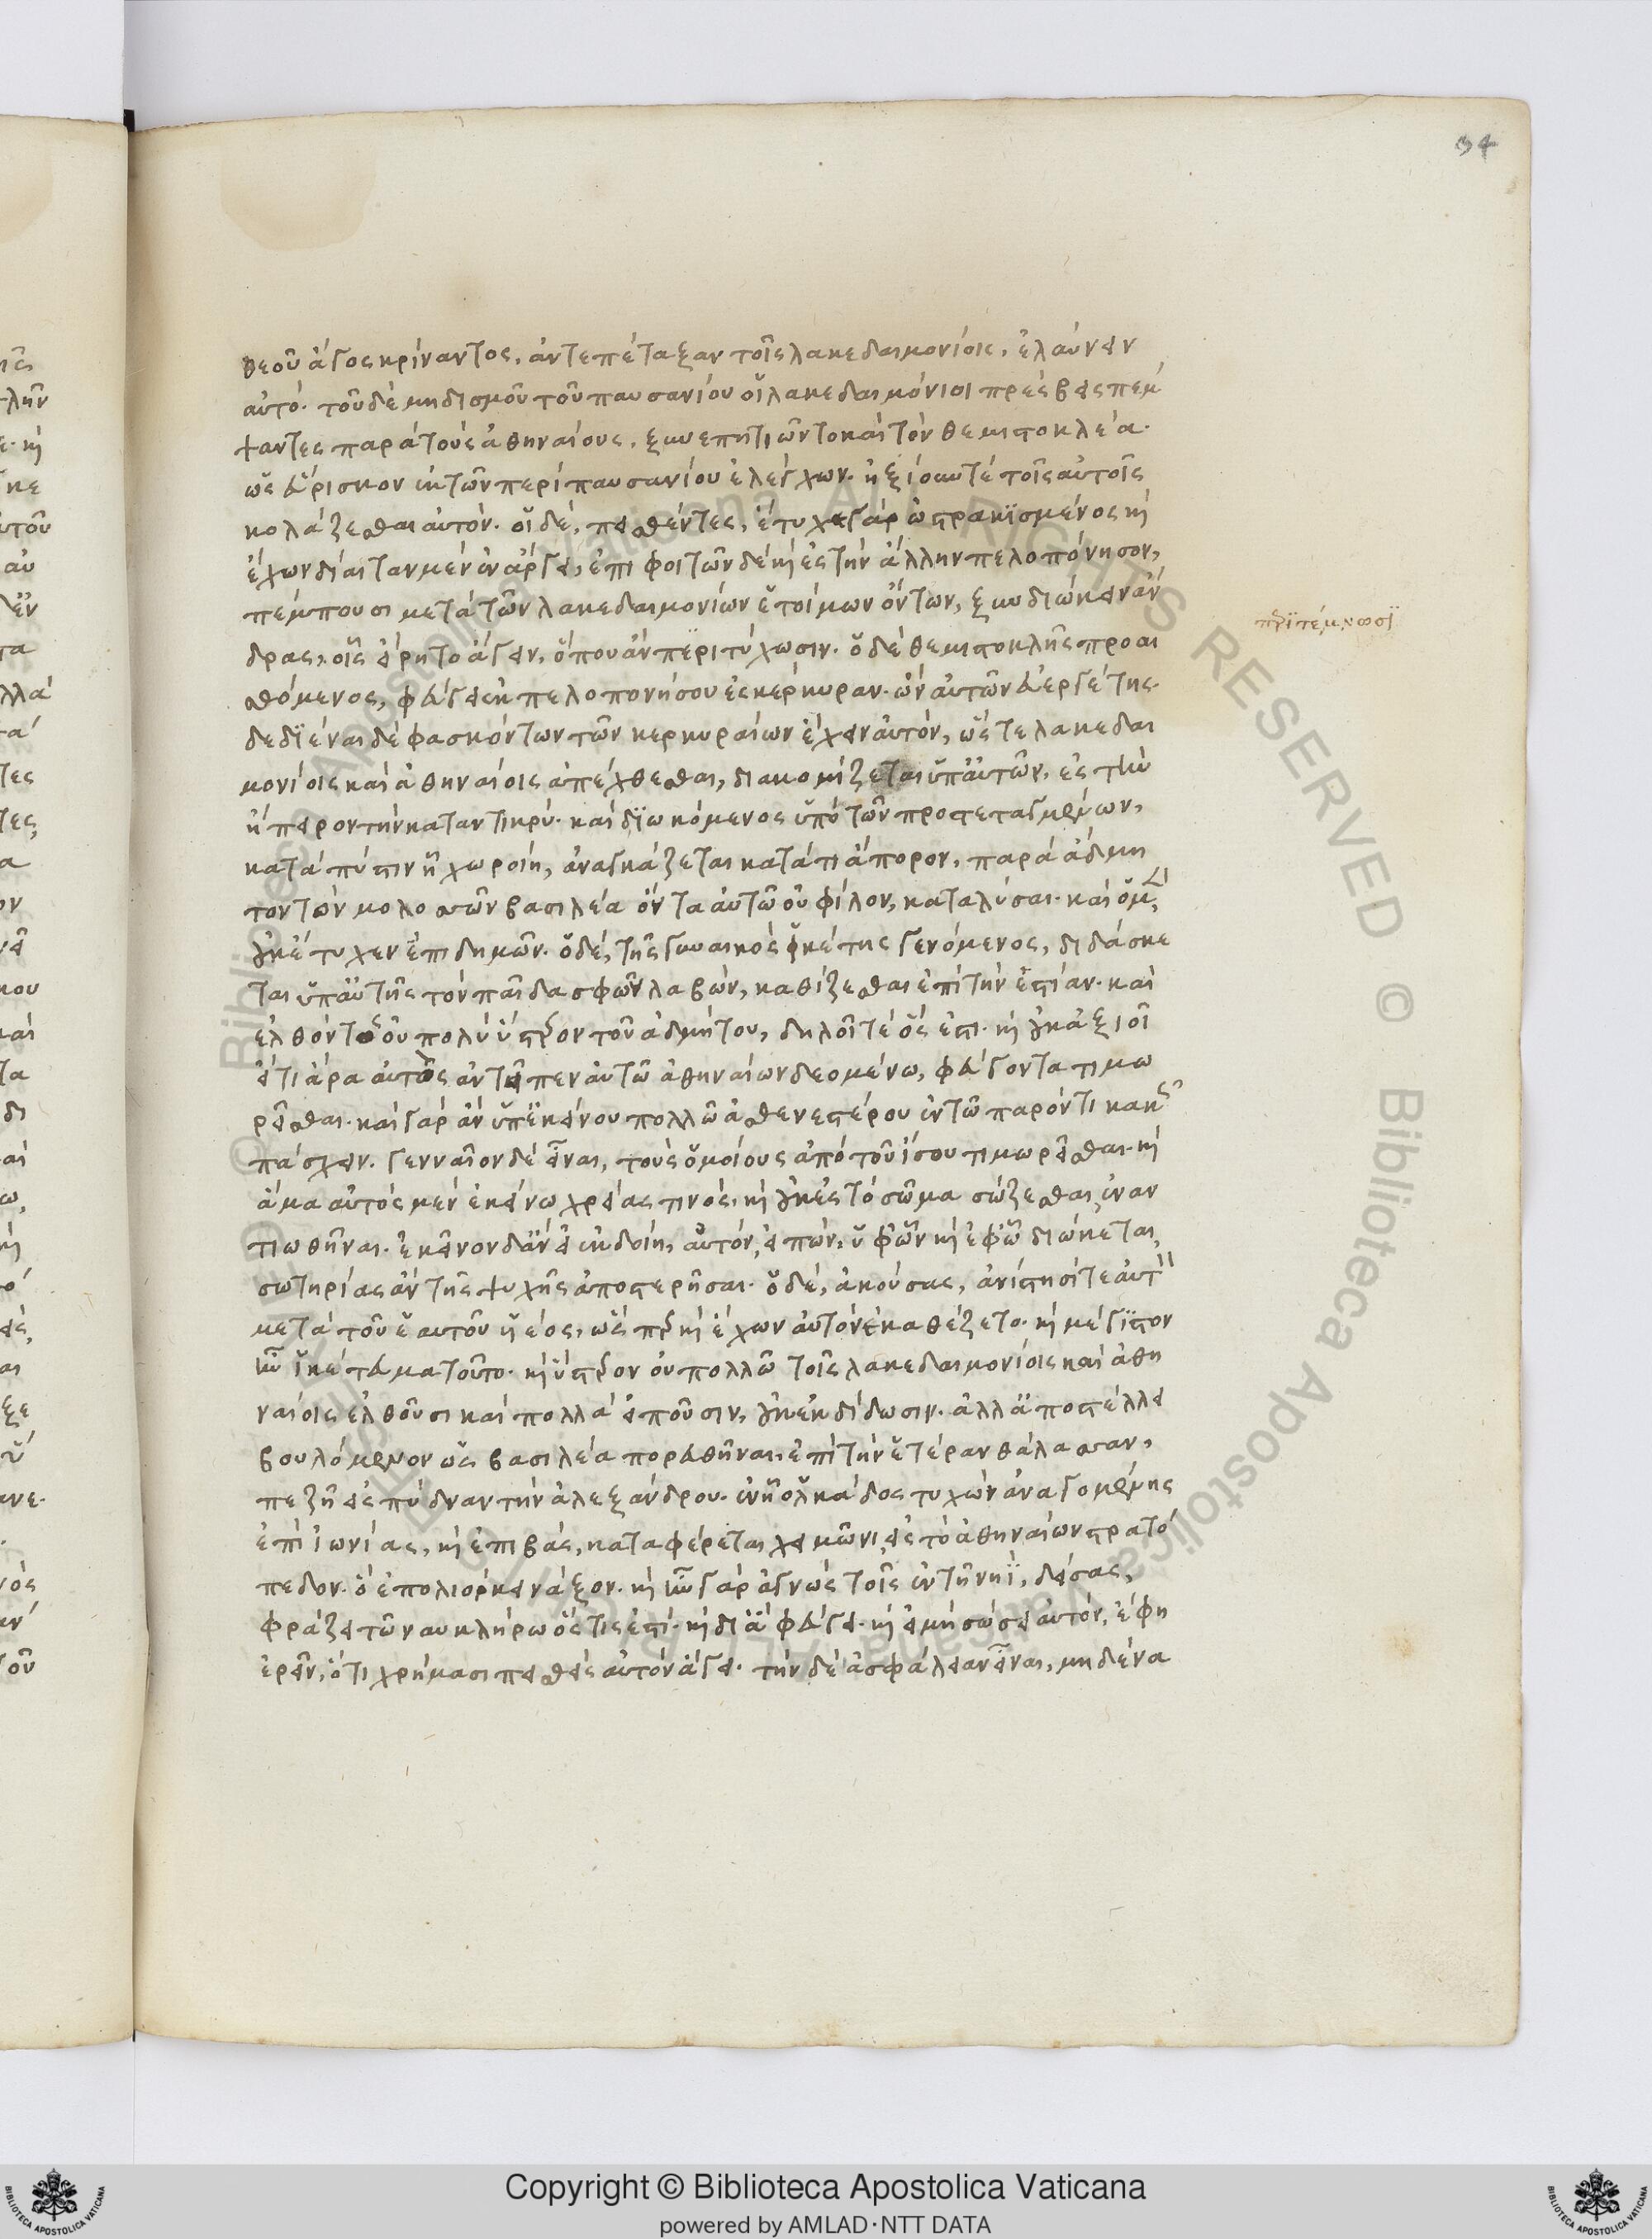 94
θεοῦ ἄγος κρίναντος, ἀντεπέταξαν τοῖς λακεδαιμονίοις, ἐλαύνειν
αὐτό· τοῦ δὲ μηδισμοῦ τοῦ παυσανίου οἱ λακεδαιμόνιοι πρέσβεις πέμ
ψαντες παρὰ τοὺς ἀθηναίους, ξυνεπῃτιῶντο καὶ τὸν θεμιστοκλέα·
ὡς εὕρισκον ἐκ τῶν περὶ παυσανίου ἐλέγχων· ἠξίουν τὲ τοῖς αὐτοῖς
κολάζεσθαι αὐτόν· οἱ δὲ, πεισθέντες, ἔτυχε γὰρ ὠστρακϊσμένος κὴ
ἔχων δίαιταν μὲν ἐν ἄργει, ἐπιφοιτῶν δὲ κὴ ἐς τὴν ἄλλην πελοπόνησον,
πέμπουσι μετὰ τῶν λακεδαιμονίων ἑτοίμων ὄντων, ξυνδιώκειν ἄν
δρας, οἷς εἴρητο ἄγειν, ὅπου ἂν περιτύχωσιν. ὁ δὲ θεμιστοκλῆς προαι
σθόμενος, φεύγει ἐκ πελοπονήσου ἐς κέρκυραν· ὢν αὐτῶν εὐεργέτης·
δεδϊέναι δὲ φασκόντων τῶν κερκυραίων ἔχειν αὐτόν, ὥστε λακεδαι
μονίοις καὶ ἀθηναίοις ἀπέχθεσθαι, διακομίζεται ὑπ' αὐτῶν, ἐς τὴν
ἤπειρον τὴν καταντικρύ· καὶ δϊωκόμενος ὑπὸ τῶν προστεταγμένων,
κατὰ πύστιν ᾗ χωροίη, ἀναγκάζεται κατά τι ἄπορον, παρὰ ἄδμη
τον τὸν μολοσσῶν βασιλέα ὄντα αὐτῶ οὐ φίλον, καταλῦσαι· καὶ ὁ μὲν
οὐκ ἔτυχεν ἐπιδημῶν· ὁ δὲ, τῆς γυναικὸς ἱκέτης γενόμενος, διδάσκε
ται ὑπ' αὐτῆς τὸν παῖδα σφῶν λαβών, καθίζεσθαι ἐπὶ τὴν ἑστίαν· καὶ
ἐλθόντος οὐ πολὺ ὕστερον τοῦ ἀδμήτου, δηλοῖ τὲ ὅς ἐστι· κὴ οὐκ ἀξιοῖ
εἴ τι ἄρα αὐτὸς ἀντεῖπεν αὐτῶ ἀθηναίων δεομένω, φεύγοντα τιμω
ρεῖσθαι· καὶ γὰρ ἂν ὑπ' ἐκείνου πολλῶ ἀσθενεστέρου ἐν τῶ παρόντι κακῶς
πάσχειν. γενναῖον δὲ εἶναι, τοὺς ὁμοίους ἀπὸ τοῦ ἴσου τιμωρεῖσθαι· κὴ
ἅμα αὐτὸς μὲν ἐκείνω χρείας τινός, κὴ οὐκ ἐς τὸ σῶμα σώζεσθαι, ἐναν
τιωθῆναι· ἐκεῖνον δ' ἂν εἰ ἐκδοίη, αὐτόν, εἰπὼν, ὑφ' ὧν κὴ ἐφ' ᾧ διώκεται,
σωτηρίας ἂν τῆς ψυχῆς ἀποστερῆσαι. ὁ δὲ, ἀκούσας, ἀνίστησί τε αὐτὸν
μετὰ τοῦ ἑαυτοῦ ὑϊέος, ὥσπερ κὴ ἔχων αὐτὸν ἐκαθέζετο· κὴ μέγϊστον
ἦν ἱκέτευμα τοῦτο· κὴ ὕστερον οὐ πολλῶ τοῖς λακεδαιμονίοις καὶ ἀθη
ναίοις ἐλθοῦσι καὶ πολλὰ εἰποῦσιν, οὐκ ἐκδίδωσιν. ἀλλ' ἀποστέλλει
βουλόμενον ὡς βασιλέα πορευθῆναι, ἐπὶ τὴν ἑτέραν θάλασσαν,
πεζῇ ἐς πύδναν τὴν ἀλεξάνδρου· ἐν ᾗ ὁλκάδος τυχὼν ἀναγομένης
ἐπὶ ἰωνίας, κὴ ἐπιβάς, καταφέρεται χειμῶνι ἐς τὸ ἀθηναίων στρατό
πεδον· ὃ ἐπολιόρκει νάξον· κὴ ἦν γὰρ ἀγνὼς τοῖς ἐν τῇ νηΐ, δείσας,
φράζει τῶ ναυκλήρω ὅστις ἐστί· κὴ δι' ἃ φεύγει· κὴ εἰ μὴ σώσει αὐτόν, ἔφη
ἐρεῖν, ὅτι χρήμασι πεισθεὶς αὐτὸν ἄγει· τὴν δὲ ἀσφάλειαν εἶναι, μηδένα
Copyright © Biblioteca Apostolica Vaticana
powered by AMLAD·NTT DATA